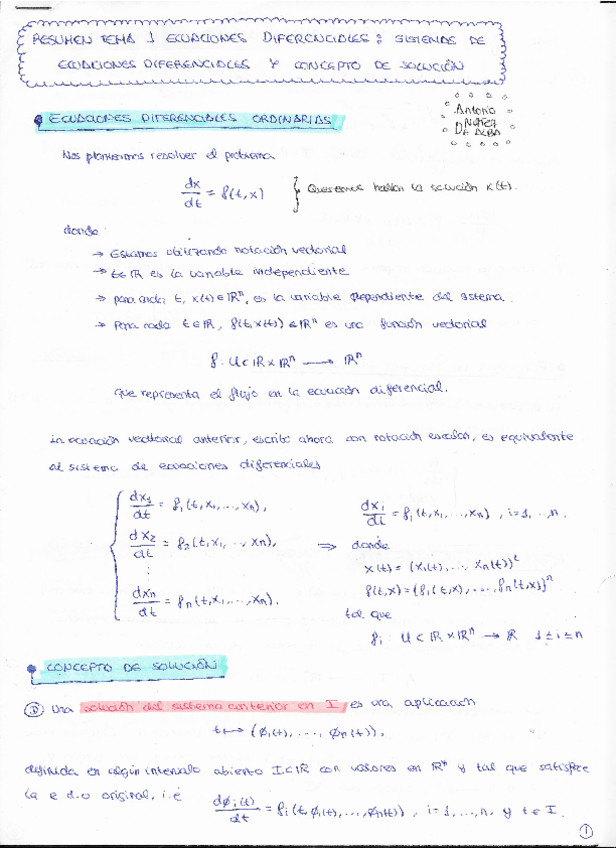 RESUMEN TEMA 1 ECUACIONES DIFERENCIALES: SISTEMAS DE
ECUACIONES DIFERENCIALES Y CONCEPTO DE SOLUCIÓN
Antonio
DE ALBA
ECUACIONES DIFERENCIALES ORDINARIAS
Nos planteamos resolver el problema
dx/dt = f(t,x) } Queremos hallar la solución x(t).
donde:
→ Estamos utilizando notación vectorial
→ t∈ℝ es la variable independiente
→ para cada t, x(t)∈ℝⁿ, es la variable dependiente del sistema.
→ Para cada t∈ℝ, f(t,x(t))∈ℝⁿ es una función vectorial
f: U⊂ℝ×ℝⁿ → ℝⁿ
que representa el flujo en la ecuación diferencial.
la ecuación vectorial anterior, escrita ahora con notación escalar, es equivalente
al sistema de ecuaciones diferenciales
dx₁/dt = f₁(t,x₁,...,xₙ),
dx₂/dt = f₂(t,x₁,...,xₙ),
⋮
dxₙ/dt = fₙ(t,x₁,...,xₙ).
dxᵢ/dt = fᵢ(t,x₁,...,xₙ), i=1,...,n.
⇒ donde
x(t) = (x₁(t),...,xₙ(t))ᵗ
f(t,x) = (f₁(t,x),...,fₙ(t,x))ⁿ
tal que
fᵢ: U⊂ℝ×ℝⁿ → ℝ 1≤i≤n
CONCEPTO DE SOLUCIÓN
Ⓓ Una solución del sistema anterior en I es una aplicación
t ↦ (ϕ₁(t),...,ϕₙ(t)),
definida en algún intervalo abierto I⊂ℝ con valores en ℝⁿ y tal que satisface
la e.d.o original, i.e
dϕᵢ(t)/dt = fᵢ(t,ϕ₁(t),...,ϕₙ(t)), i=1,...,n, y t∈I.
①